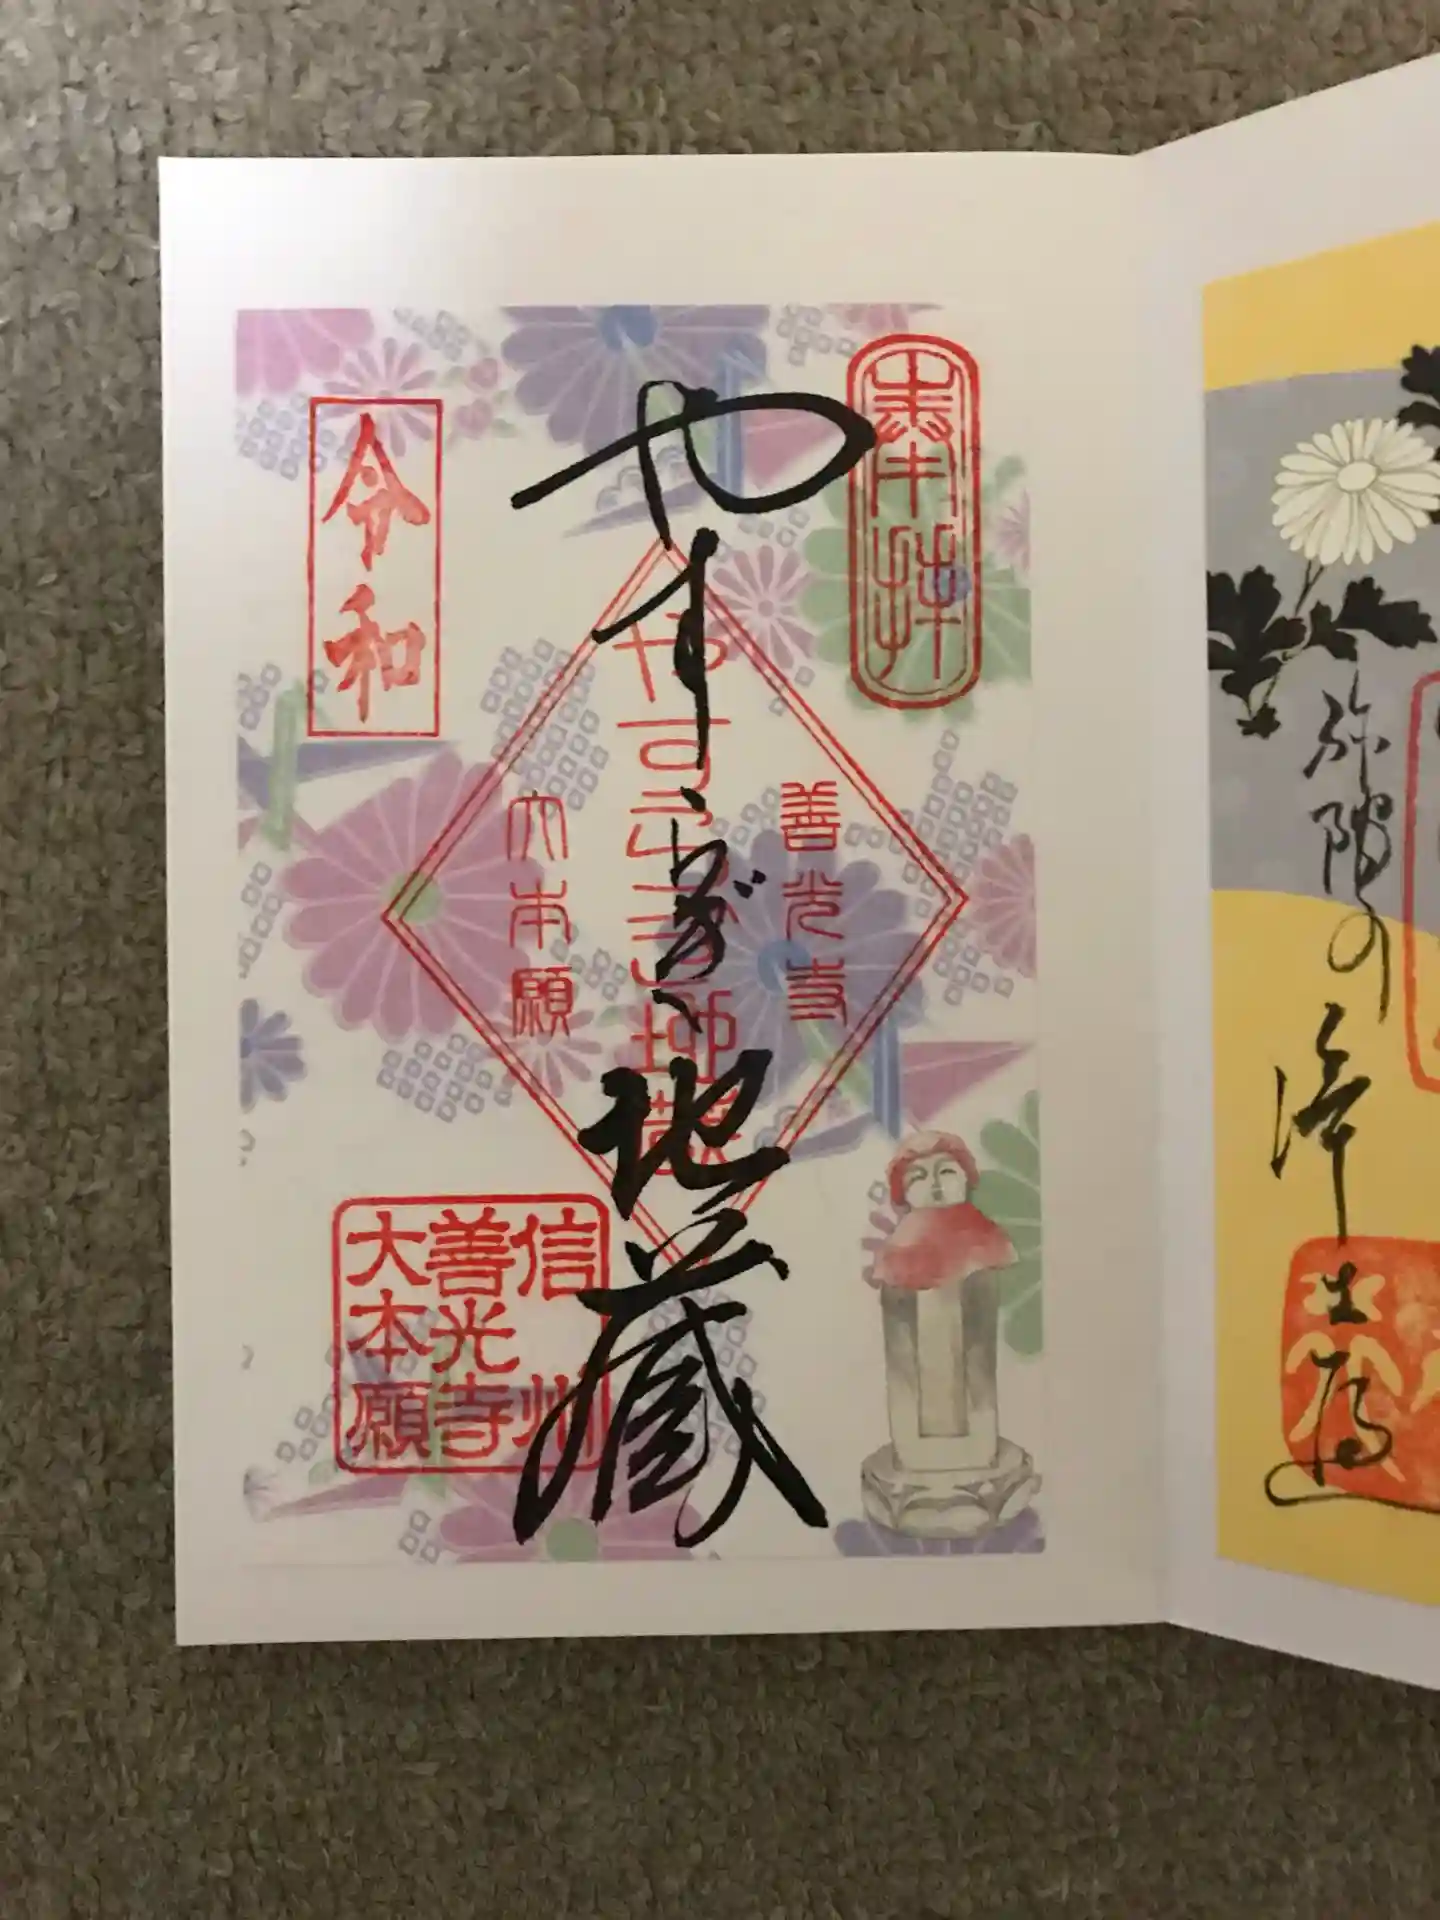 奉拝
やすらぎ地蔵
善光寺
やすらぎ地蔵
大本願
令和
信州
善光寺
大本願